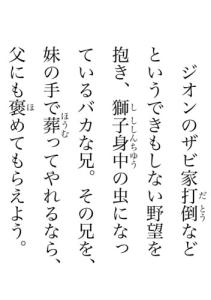 ジオンのザビ家打倒など
というできもしない野望を
抱き、獅子身中の虫になっ
ているバカな兄。その兄を、
妹の手で葬ってやれるなら、
父にも褒めてもらえよう。